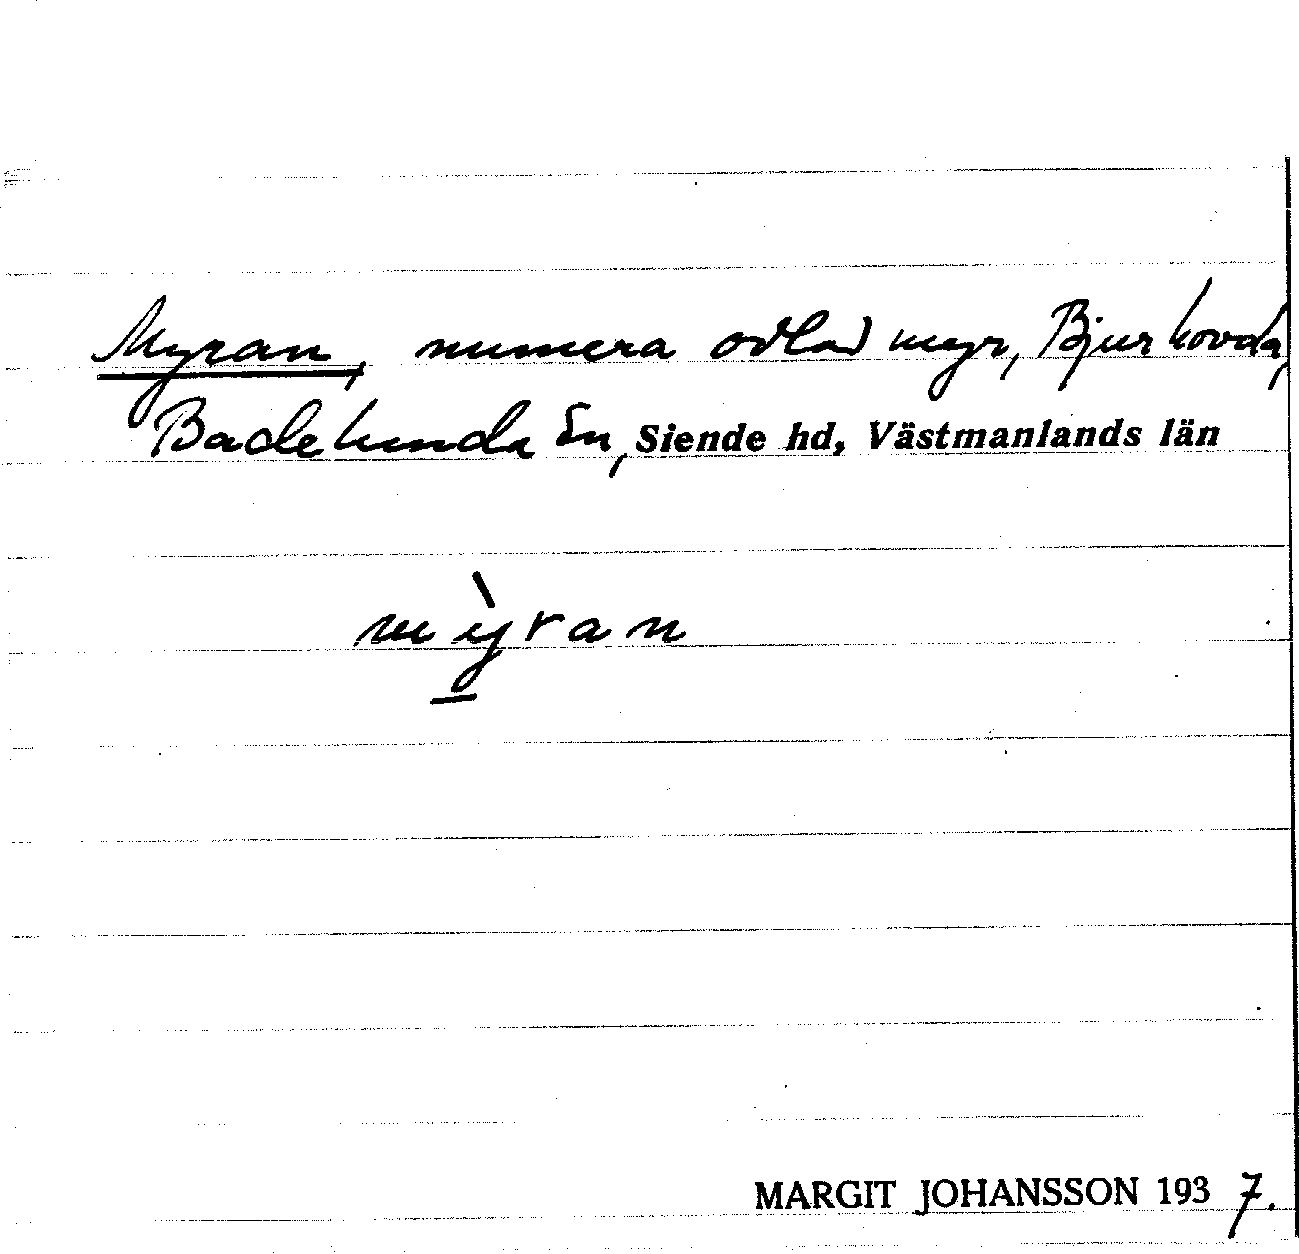 Myran, numera odlad myr, Bjurhovda,
Badelunda sn, Siende hd, Västmanlands län
mỳran
MARGIT JOHANSSON 1937.